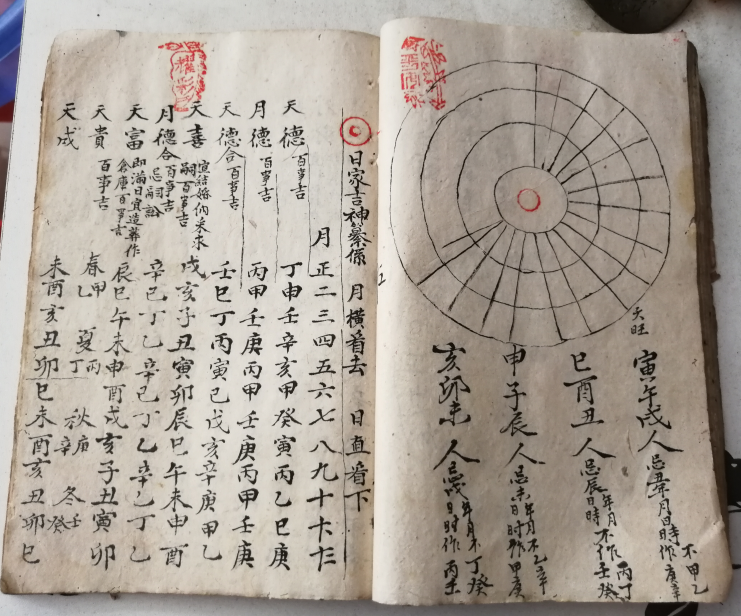 天旺
寅午戌人忌丑年月日時作不甲乙庚辛
巳酉丑人忌辰年月日時不作丙丁壬癸
申子辰人忌未年月日時作不乙辛甲庚
亥卯未人忌戌年月日時作不丁癸丙壬
日家吉神纂係 月橫看去 日直看下
月正二三四五六七八九十十一十二
天德 百事吉 丁申壬辛亥甲癸寅丙乙巳庚
月德 百事吉 丙甲壬庚丙甲壬庚丙甲壬庚
天德合 百事吉 壬巳丁丙寅己戊亥辛庚甲乙
天喜 宜結婚納采求嗣百事吉 戌亥子丑寅卯辰巳午未申酉
月德合 百事吉忌詞訟 辛己丁乙辛己丁乙辛己丁乙
天富 即滿日宜造葬作倉庫百事吉 辰巳午未申酉戌亥子丑寅卯
天貴 百事吉 春甲乙 夏丙丁 秋庚辛 冬壬癸
天成 未酉亥丑卯巳未酉亥丑卯巳